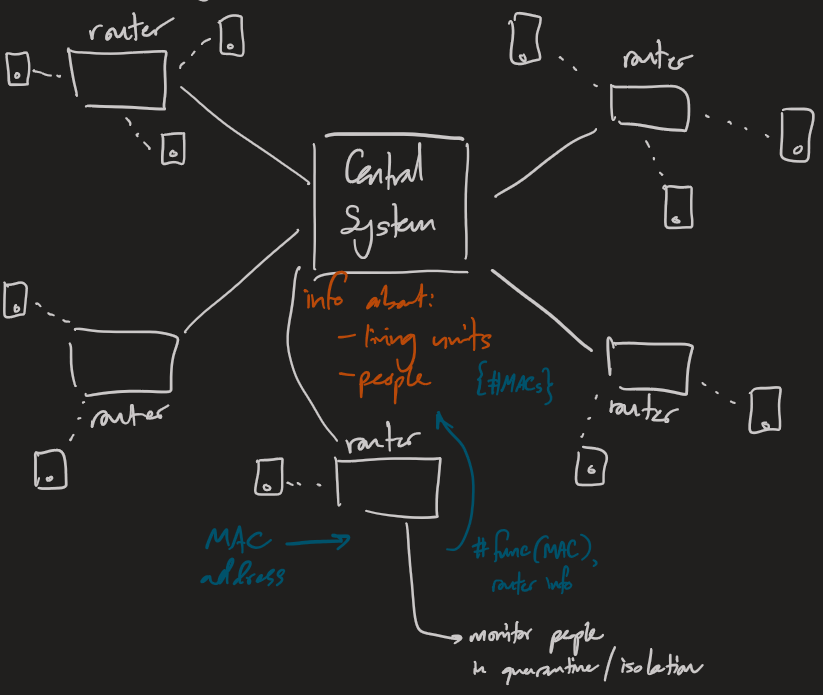 router
router
Central
System
info about:
- living units
- people
{#MACs}
router
router
router
MAC
address
#func(MAC),
router info
monitor people
in quarantine/isolation